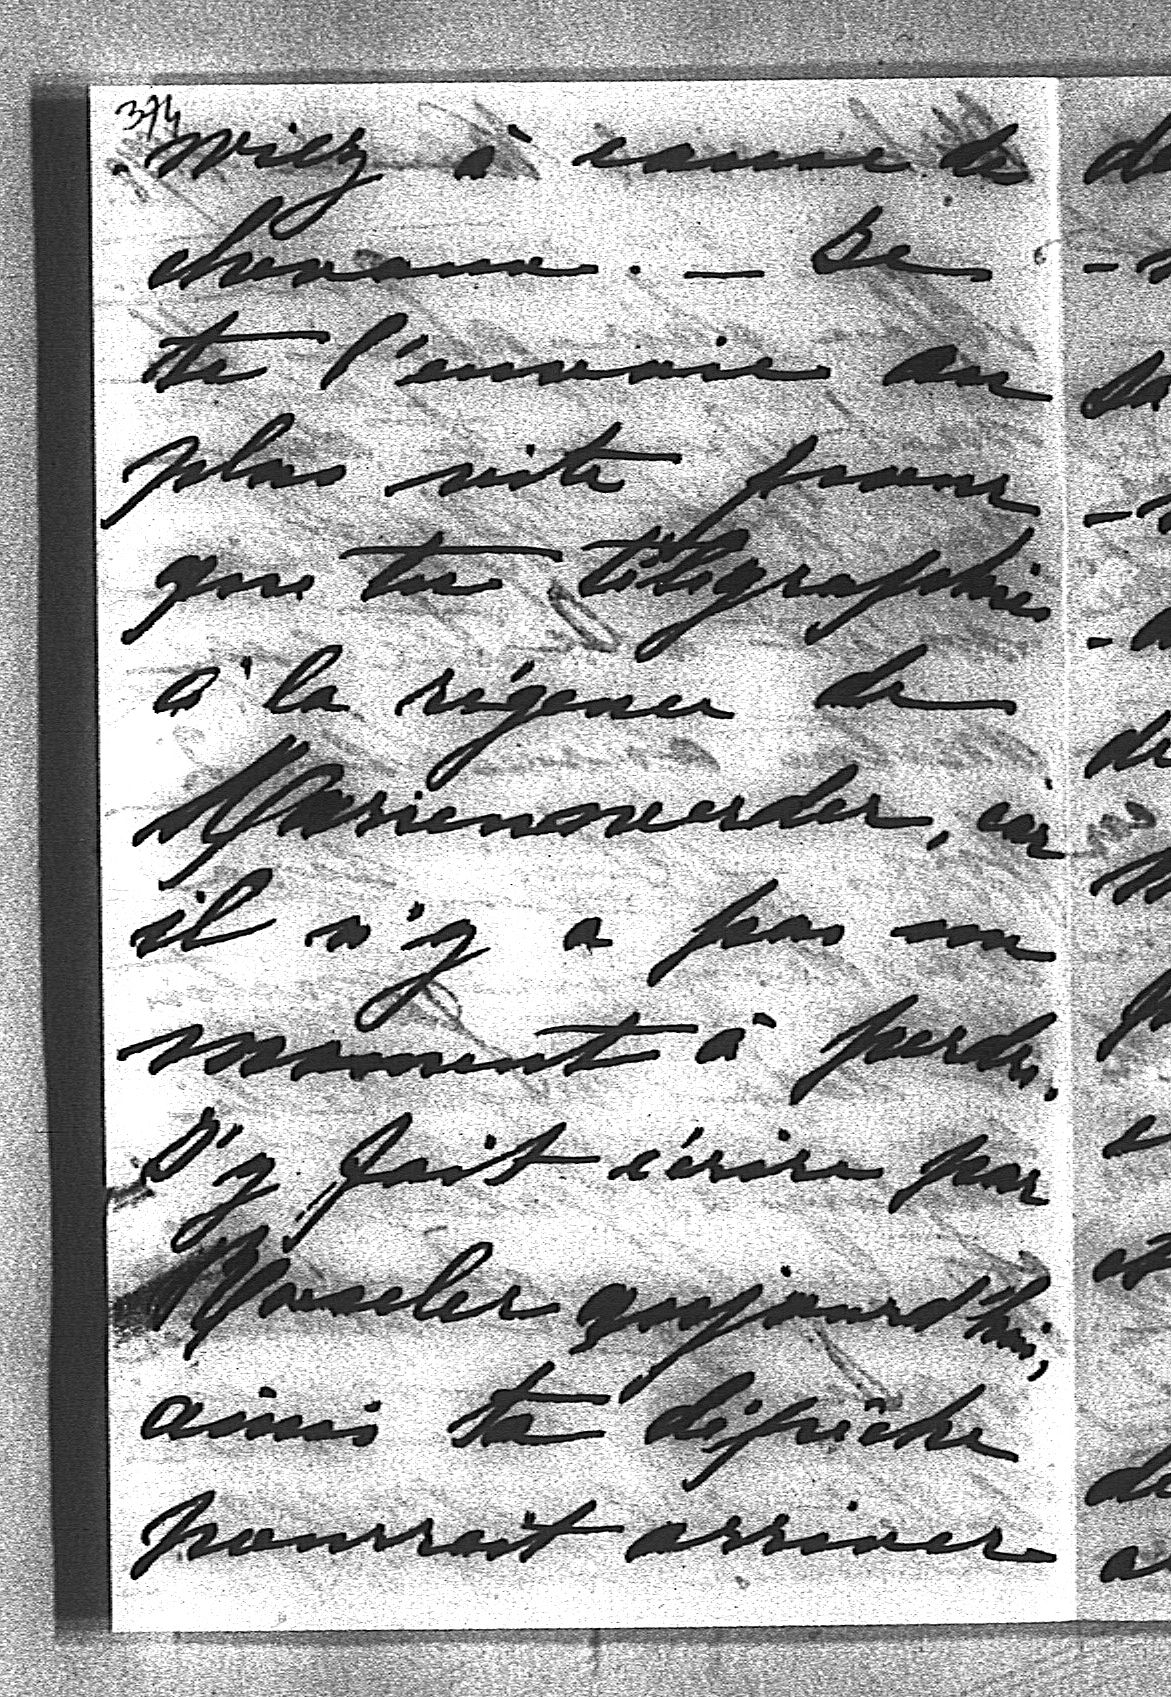 374
wicz à cause de
chevaux. — Je
te l'envoie au
plus vite pour
que tu télégraphies
à la régence de
Marienwerder, car
il n'y a pas un
moment à perdre.
J'y fait écrire par
aujourd'hui,
ainsi ta dépêche
pourrait arriver